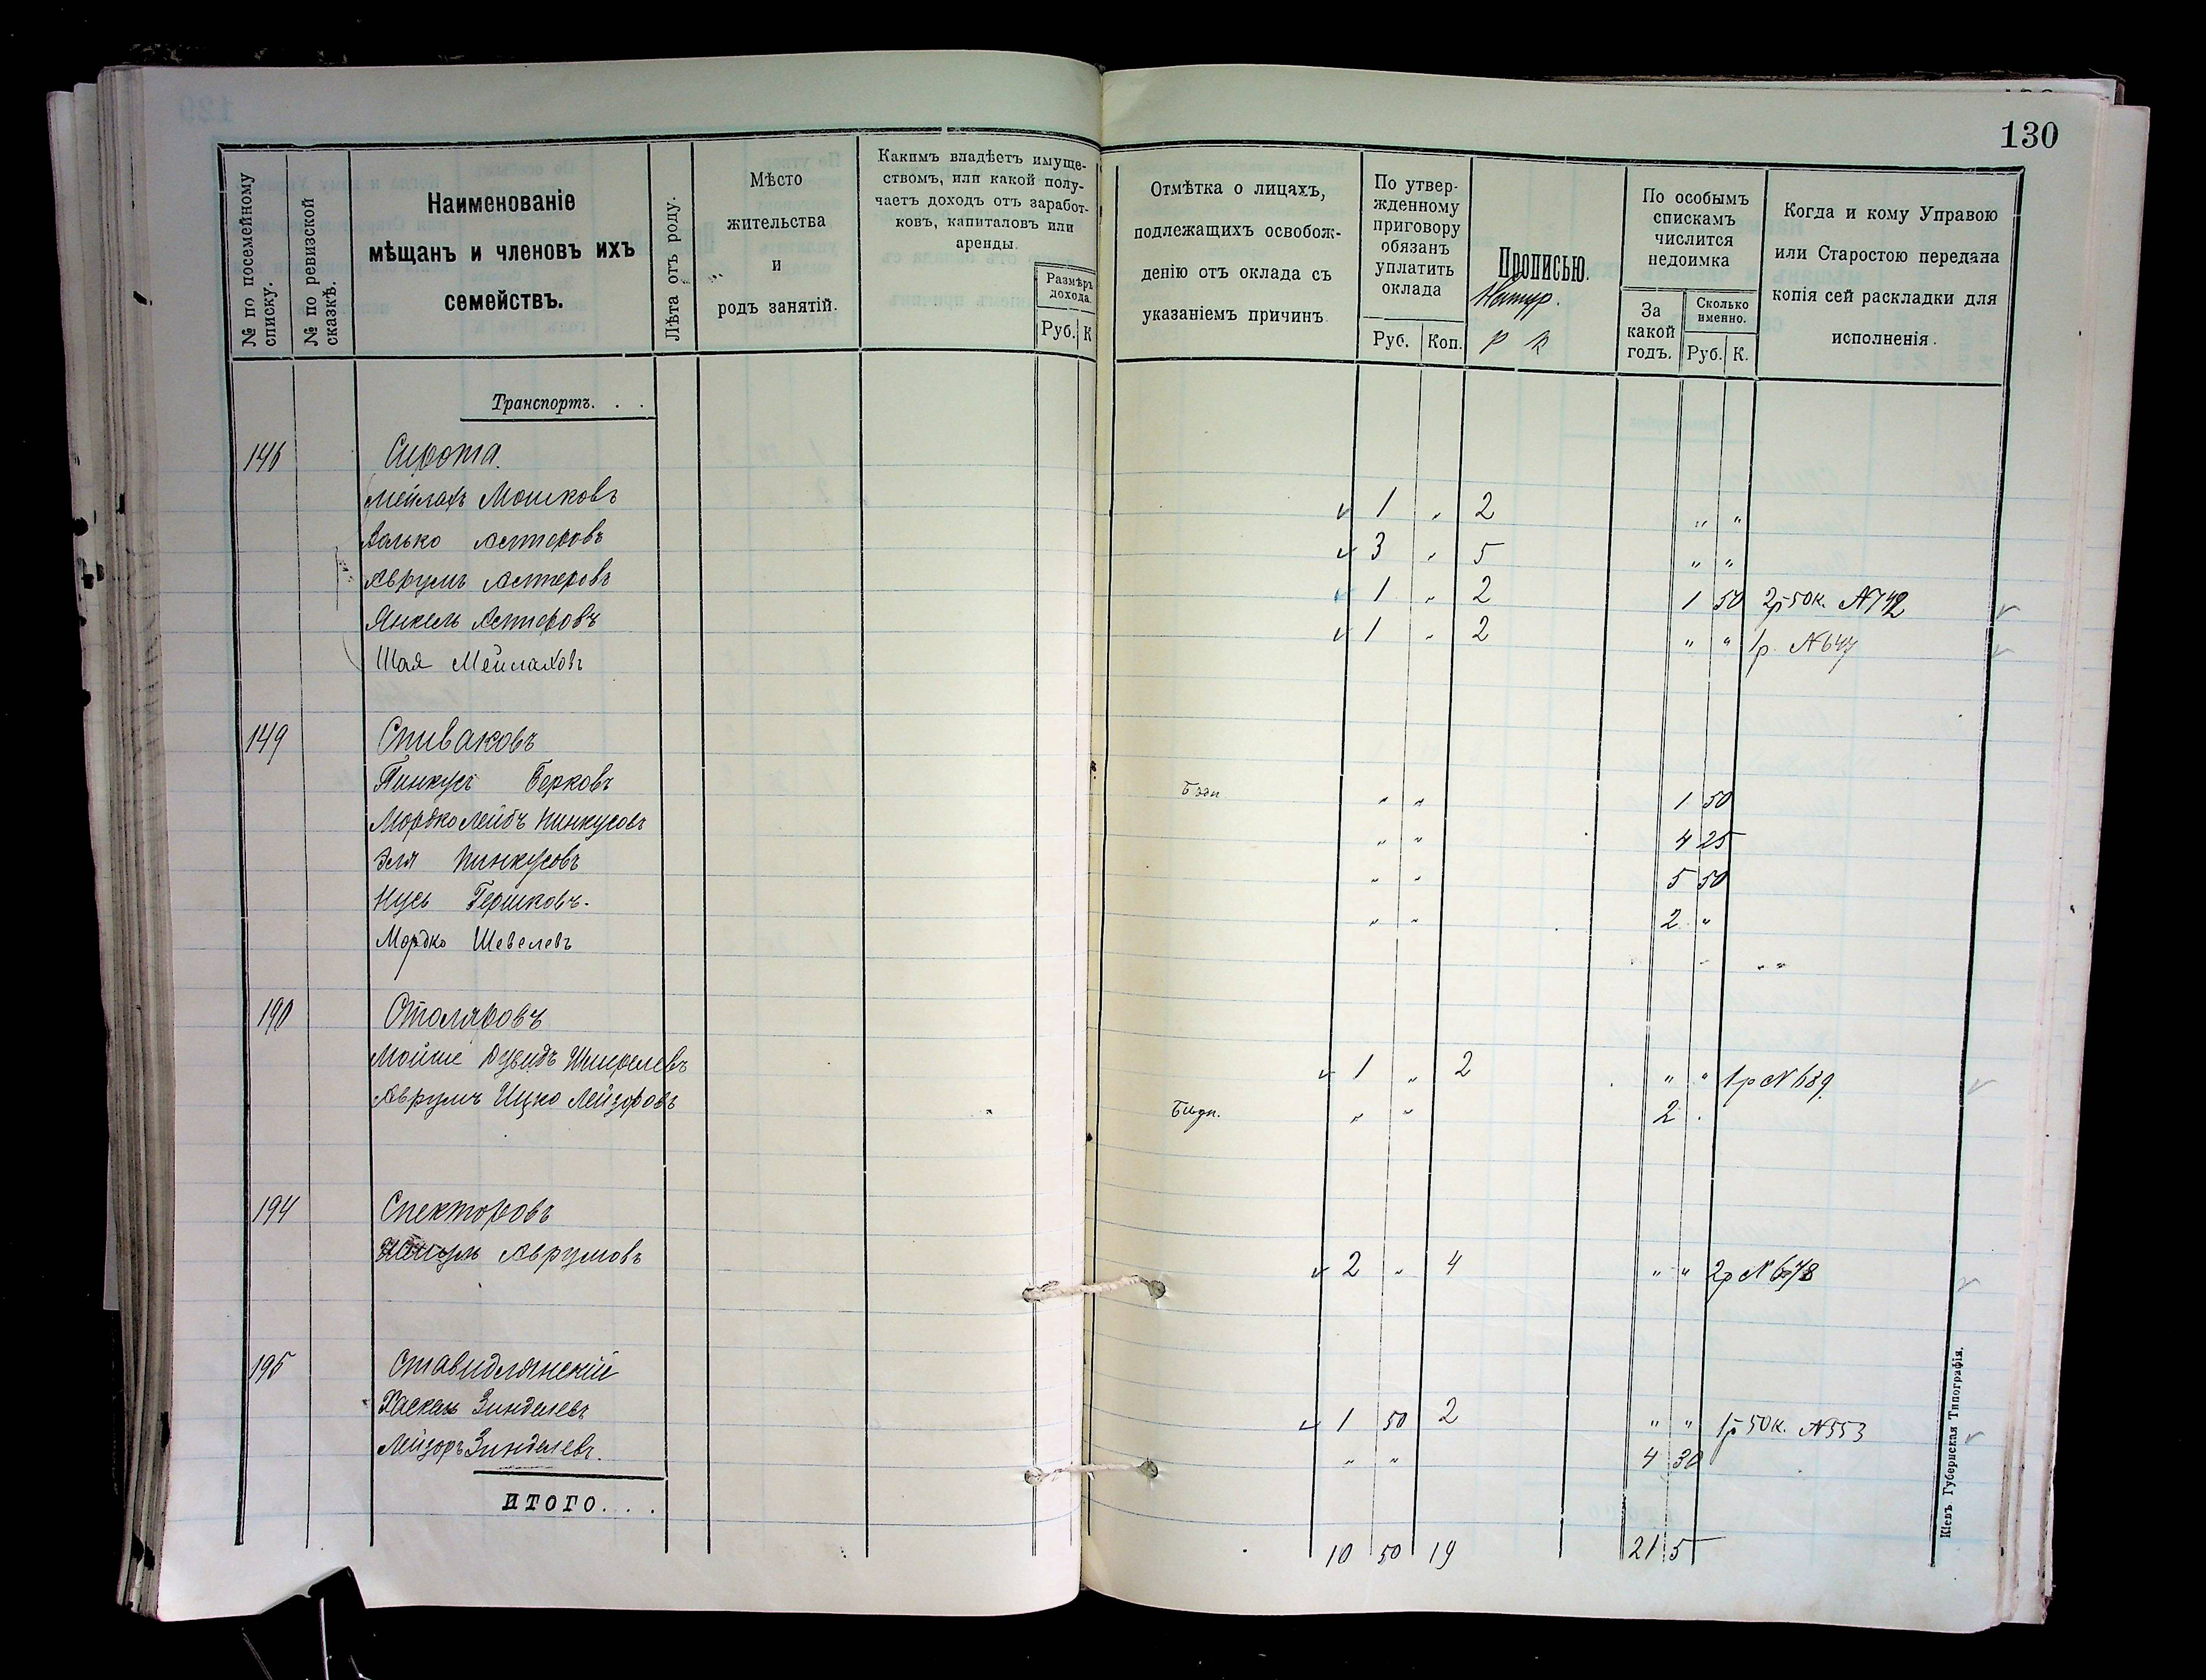 130
№ по посемейному списку.
№ по ревизской сказкѣ.
Наименованіе мѣщанъ и членовъ ихъ семействъ.
Лѣта отъ роду.
Мѣсто жительства и родъ занятій.
Какимъ владѣетъ имуществомъ, или какой получаетъ доходъ отъ заработковъ, капиталовъ или аренды.
Размѣръ дохода.
Руб. К
Отмѣтка о лицахъ, подлежащихъ освобожденію отъ оклада съ указаніемъ причинъ
По утвержденному приговору обязанъ уплатить оклада
Руб. Коп.
Прописью.
Натур.
р к
По особымъ спискамъ числится недоимка
За какой годъ.
Сколько именно.
Руб. К.
Когда и кому Управою или Старостою передана копія сей раскладки для исполненія.
Транспортъ. . .
146 Сирота.
Мейлахъ Мошковъ 1 „ 2 „ „
Волько Лестеровъ 3 „ 5 „ „
Аврумъ Лестеровъ 1 „ 2 1 50 2р 50к. №742
Янкель Лестеровъ 1 „ 2 „ „ 1р. №647
Шая Мейлаховъ
149 Спиваковъ
Пинкусъ Берковъ Бѣдн „ „ 1 50
Мордко Лейбъ Пинкусовъ „ „ 4 25
Эля Пинкусовъ „ „ 5 50
Нусь Гершковъ. „ „ 2 „
Мордко Шевелевъ „ „
190 Столяровъ
Мойше Дувидъ 1 „ 2 „ „ 1р №689
Аврумъ Ицко Лейзоровъ Бѣдн. „ „ 2 .
194 Спекторовъ
Аврумовъ 2 „ 4 „ „ 2р №
195 Ставидлянскій
Хаскель Зинделевъ 1 50 2 „ „ 1р 50к. №553
Лейзоръ Зинделевъ. „ „ 4 30
ИТОГО. . . 10 50 19 21 5
Кіевъ. Губернская Типографія.